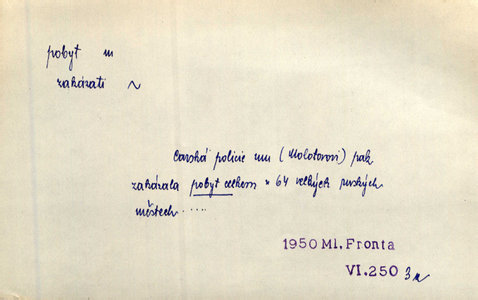 pobyt m
zakázati ~
Carská policie mu (Molotovovi) pak
zakázala pobyt celkem v 64 velkých ruských
městech .....
1950 Ml. Fronta
VI. 250 3